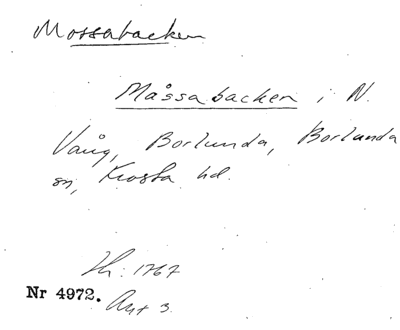 Mossabacken
Måssabacken i N.
Vång, Borlunda, Borlunda
sn, Frosta hd.
Lh: 1767
Nr 4972. Akt 3.